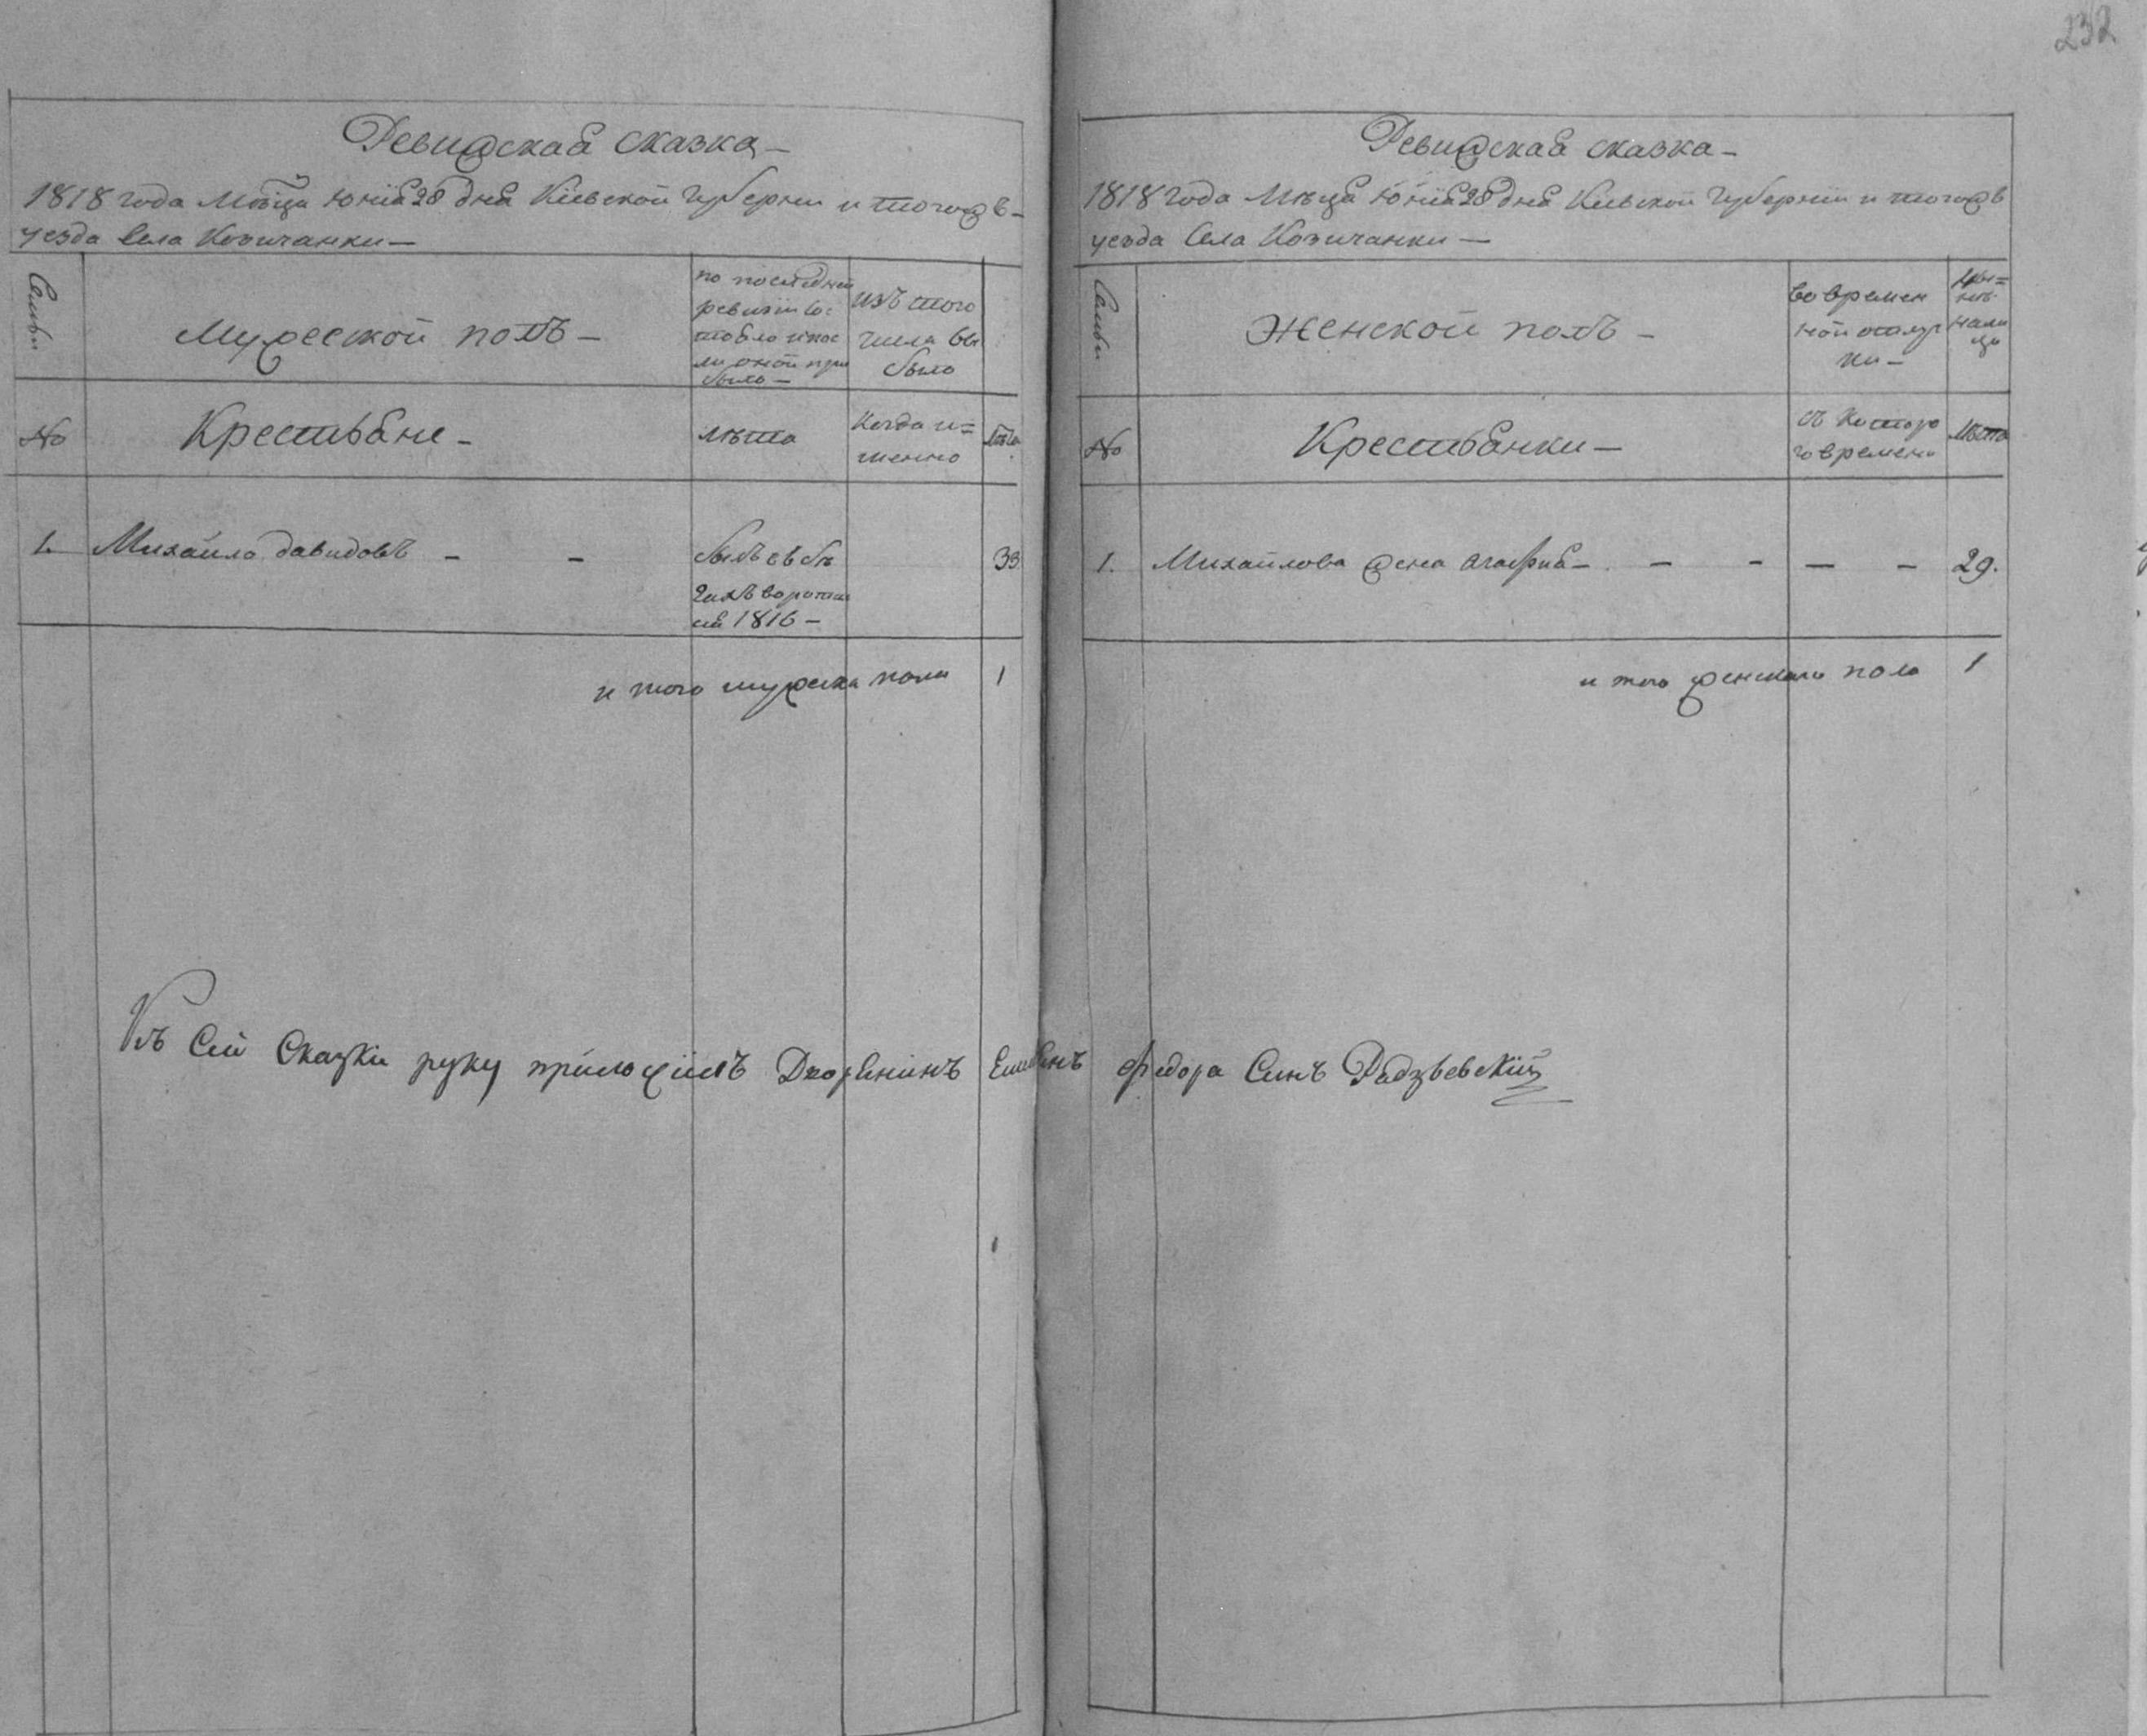 232
Ревижская сказка
1818 года Мѣсца Юнія 28 дня Кіевской Губерніи и тогожъ
уезда Села Козичанки
Семьи
Мужеской полъ
по последней
ревизіи со
стояло и пос
ли оной при
было
изъ того
числа вы
было
№
Крестьяне
лѣта
Когда и=
менно
лѣта
1. Михайло Давидовъ
былъ въ бѣ
гахъ воротил
ся 1816
33
и того мужеска пола 1
Ревижская сказка
1818 года Мѣсца Юнія 28 дня Кіевской Губерніи и тогожъ
уезда Села Козичанки
Семьи
Женской полъ
во времен
ной отлуч
ки
Ны=
нѣ
нали
цо
№
Крестьянки
съ которо
го времени
лѣта
1. Михайлова жена Агафия 29.
и того женскаго пола 1
Къ Сей Сказки руку приложилъ Дворянинъ Федора Синъ